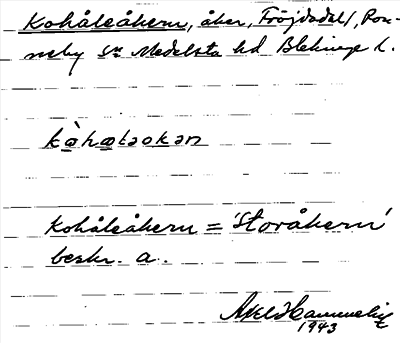 Kohålsåkern, åker, Fröjdadal/, Ron-
neby sn Medelsta hd Blekinge l.
kòhọlsokən
Kohålsåkern = 'Storåkern'
beskr. a.
Axel Hammelin
1943